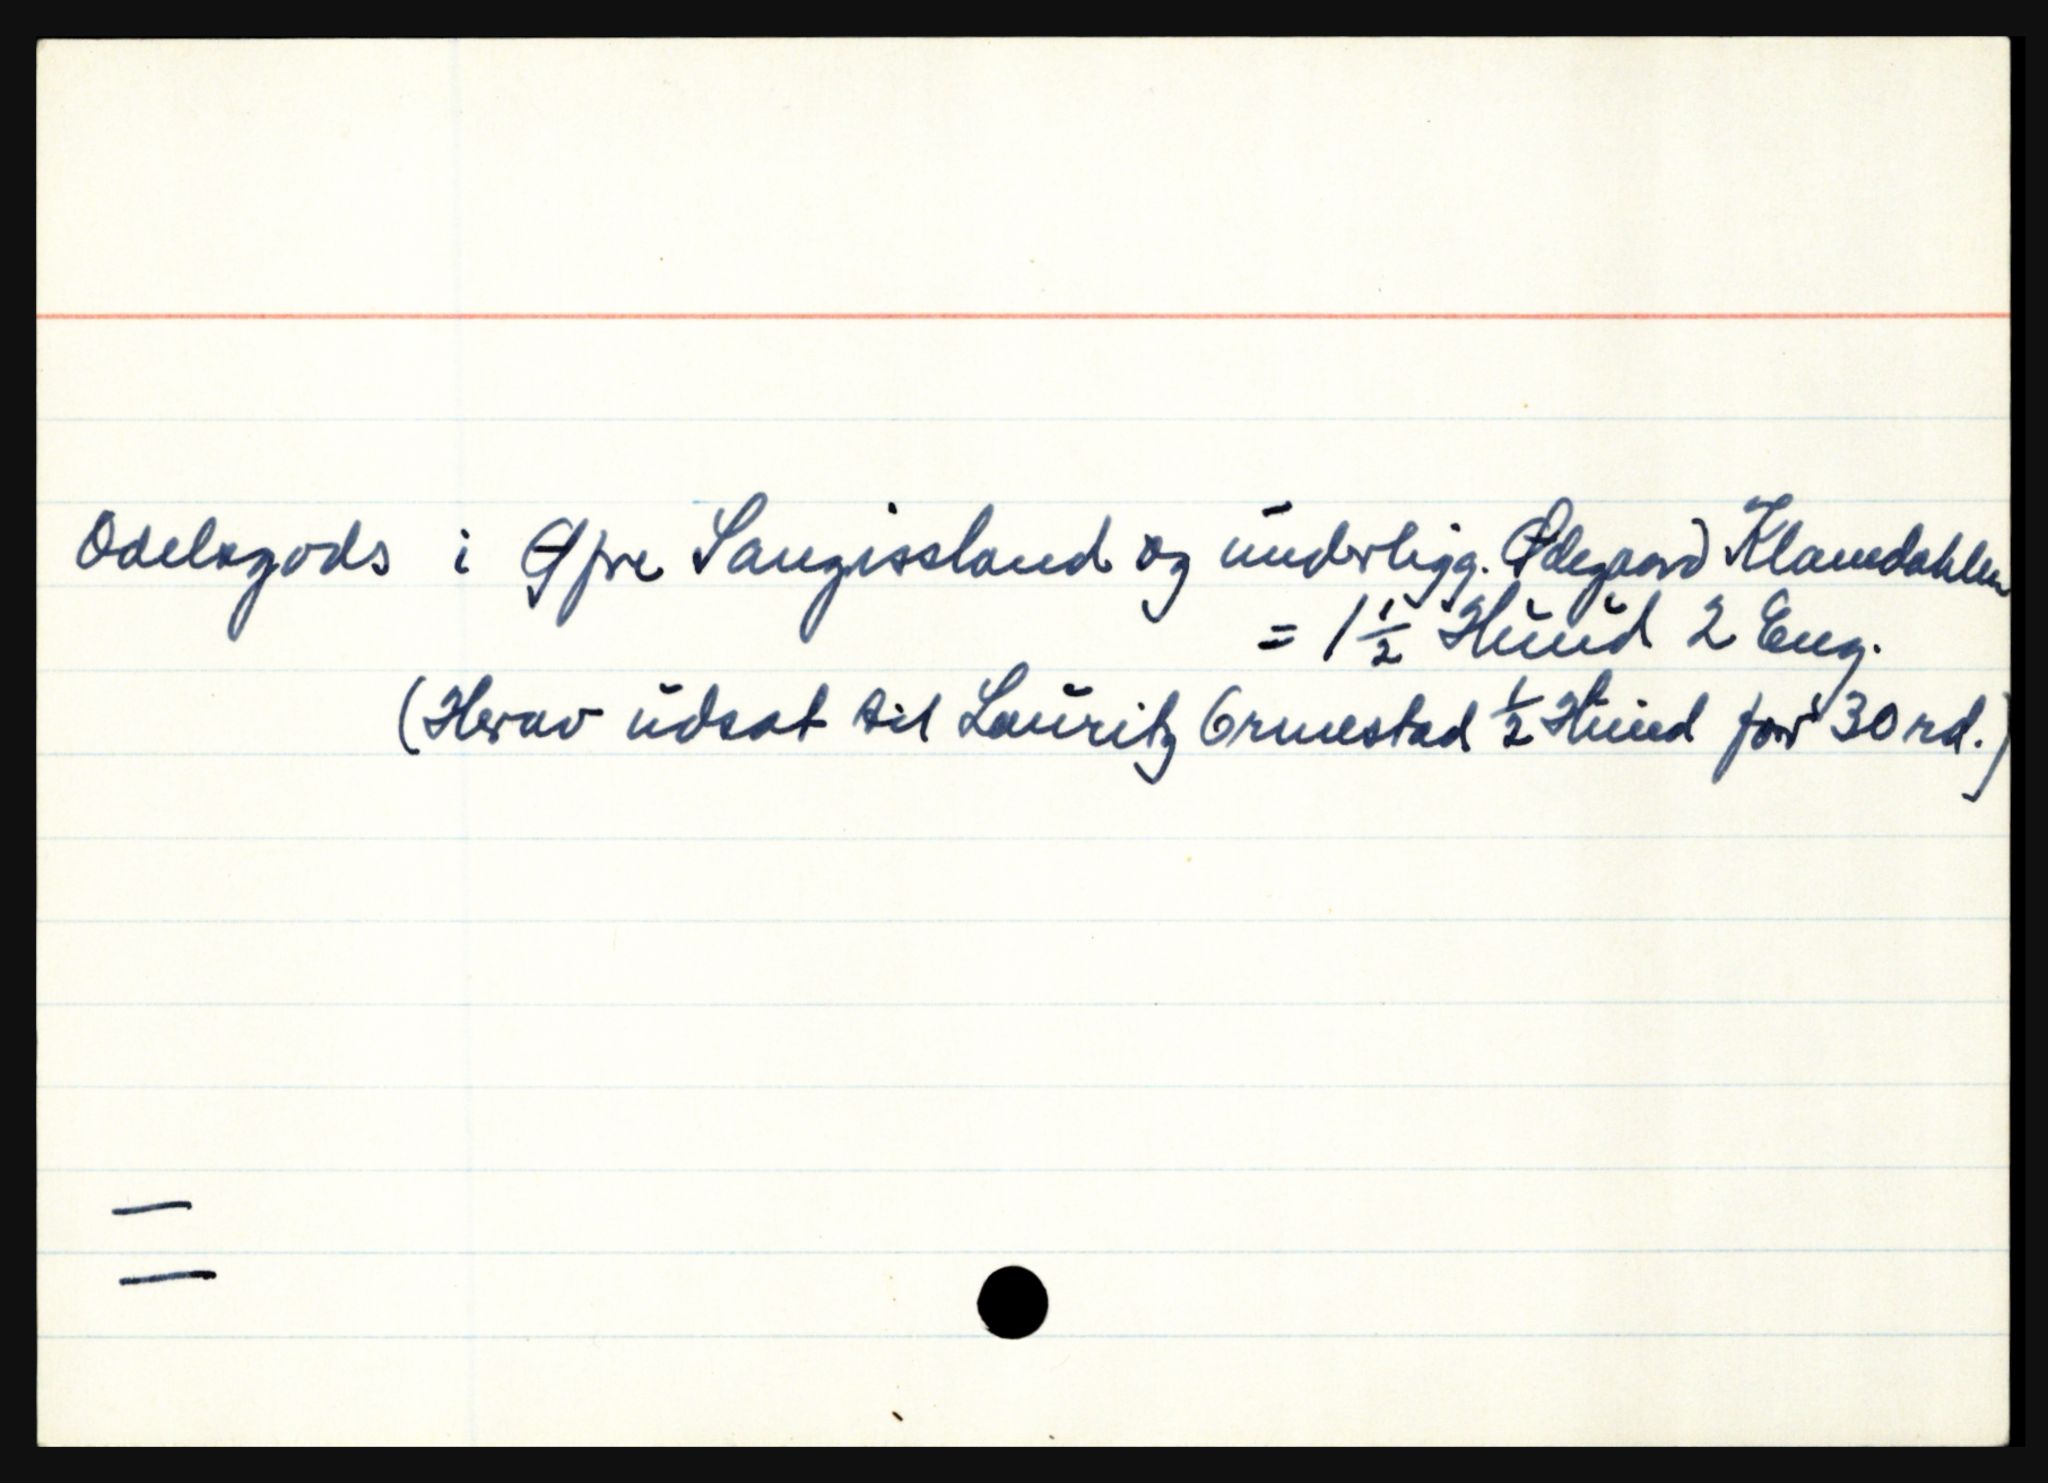 Odelsgods i Øfre Saugissland og underligg. Ødegaard Klamedahlen
= 1 1/2 Huud 2 Eng.
(Herav udsat til Lauritz Ormestad 1/2 Huud for 30 rd.)